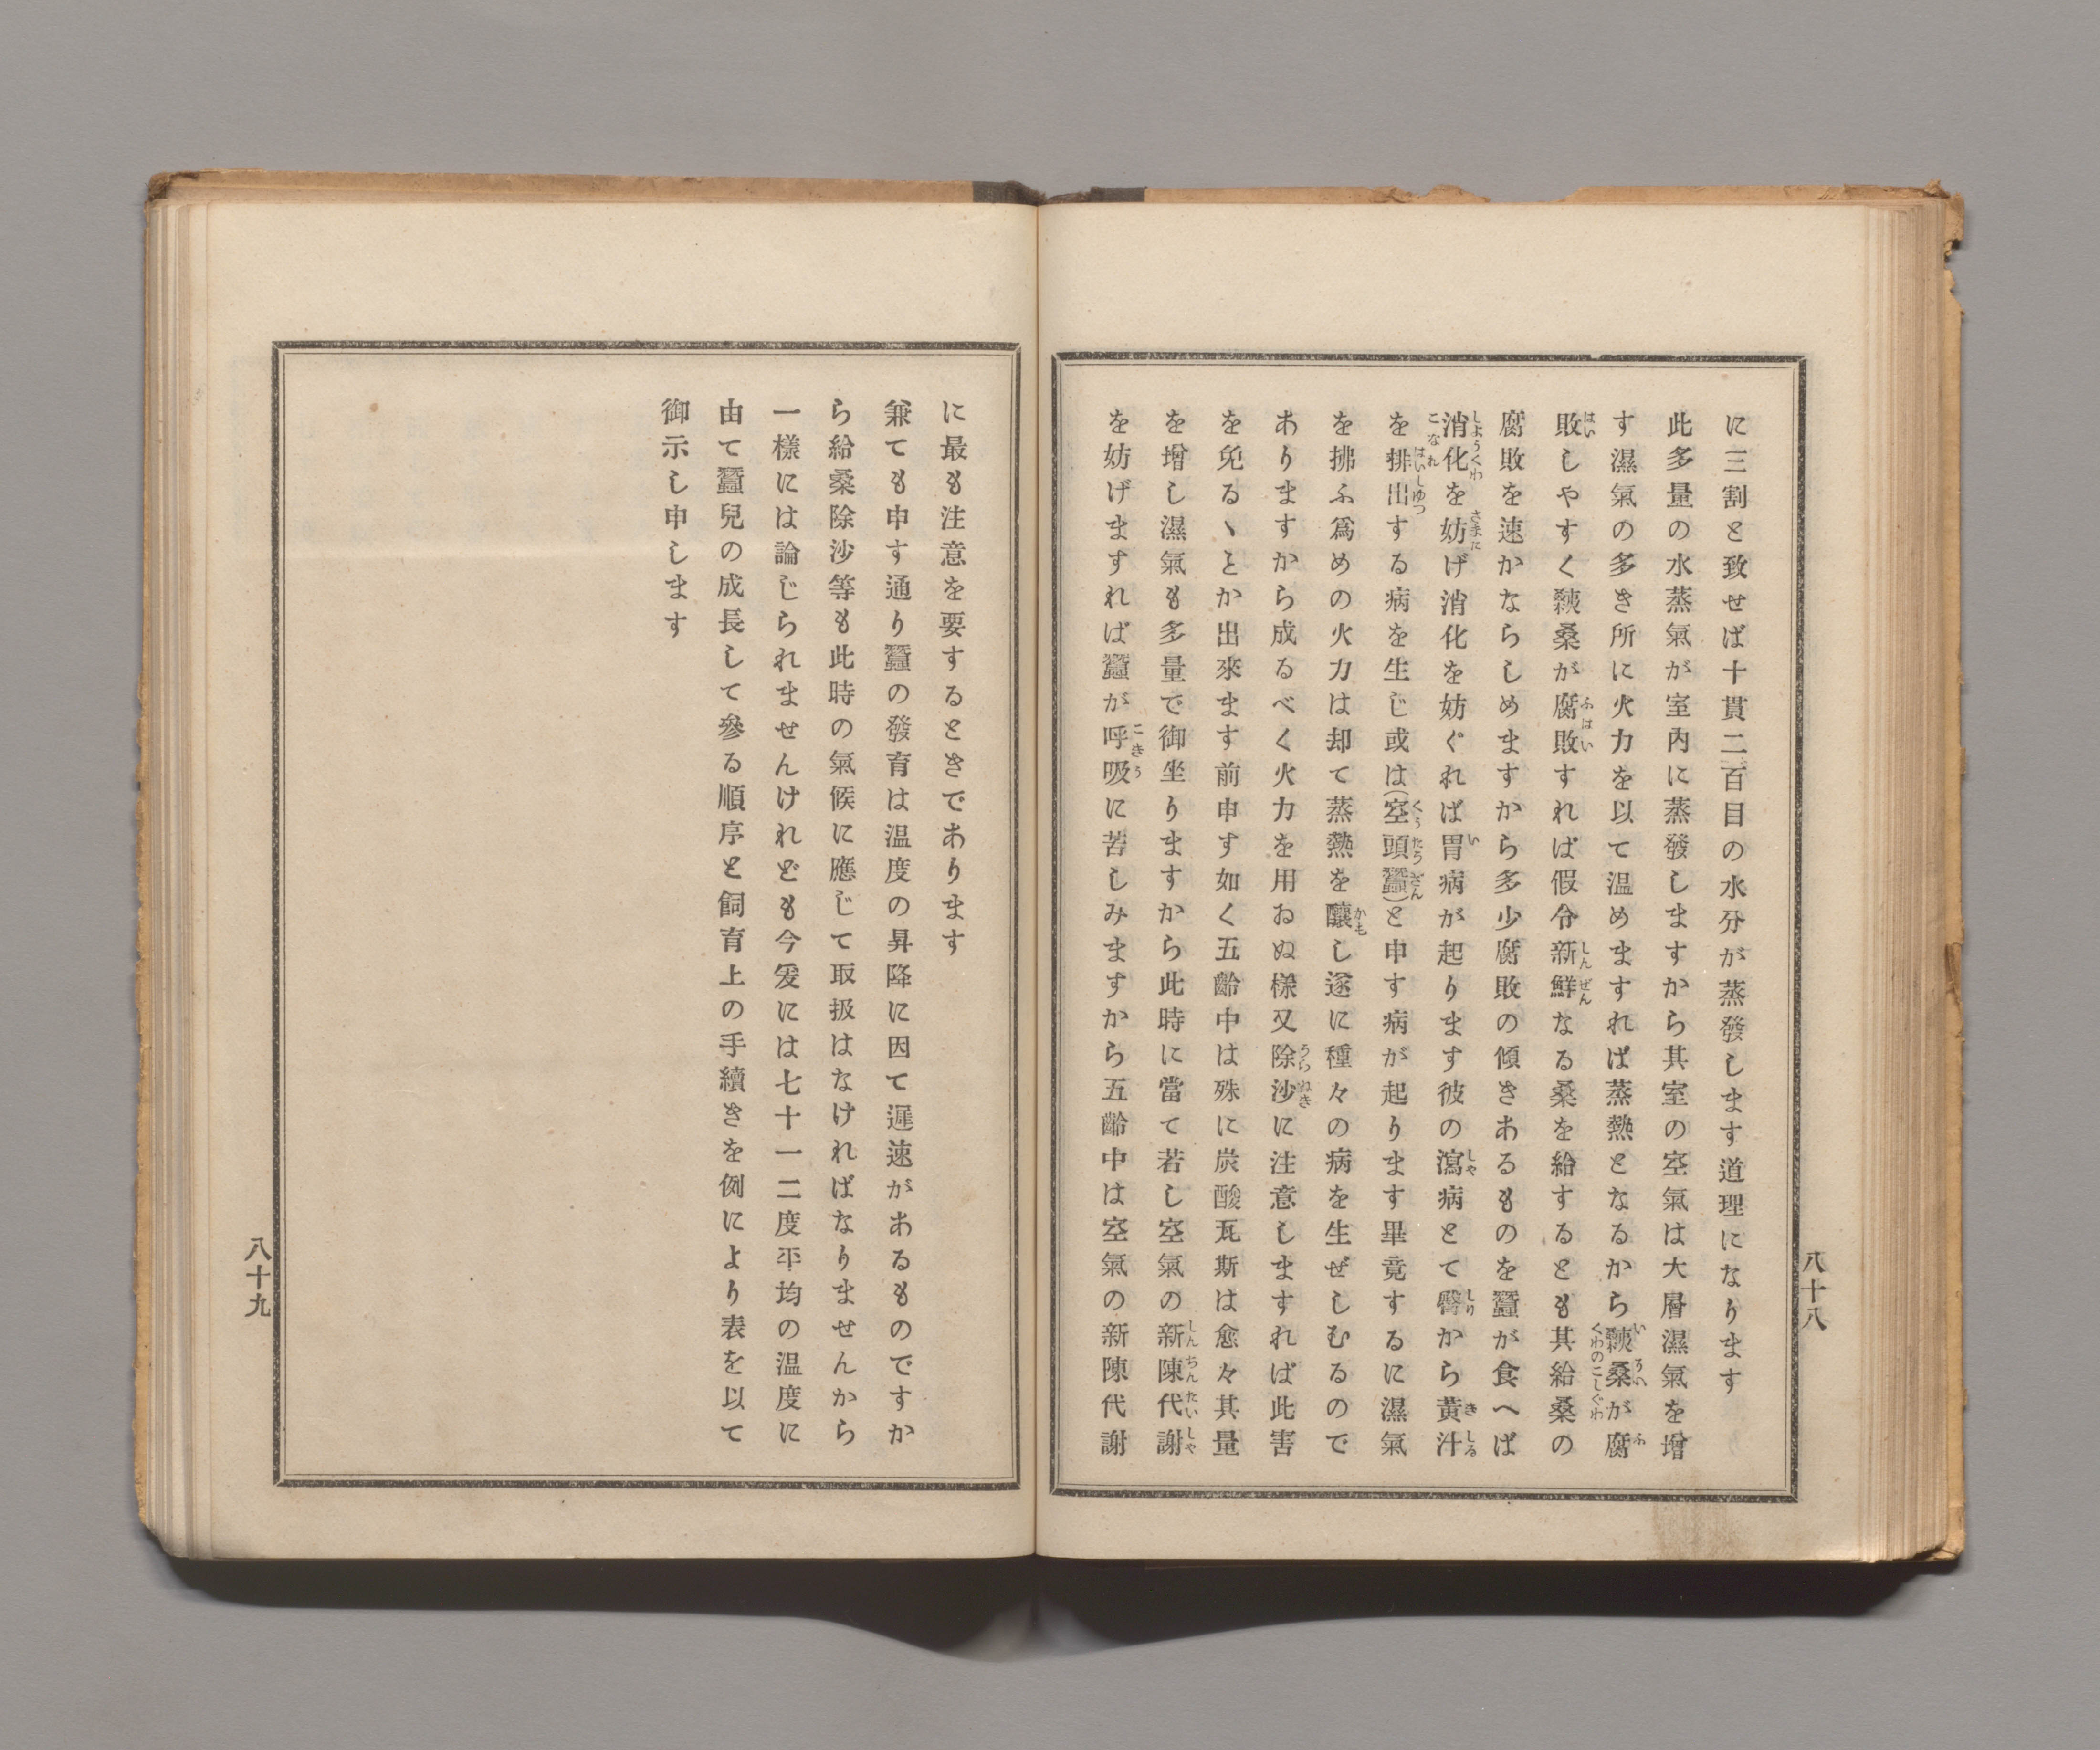 に三割と致せば十貫二百目の水分が蒸發します道理になります
此多量の水蒸氣が室内に蒸發しますから其室の空氣は大層濕氣を增
す濕氣の多き所に火力を以て温めますれば蒸熱となるから䴬桑が腐
敗しやすく䴬桑が腐敗すれば假令新鮮なる桑を給するとも其給桑の
腐敗を速かならしめますから多少腐敗の傾きあるものを蠶が食へば
消化を妨げ消化を妨ぐれば胃病が起ります彼の瀉病とて臀から黃汁
を排出する病を生じ或は(空頭蠶)と申す病が起ります畢竟するに濕氣
を拂ふ爲めの火力は却て蒸熱を釀し遂に種々の病を生ぜしむるので
ありますから成るべく火力を用ゐぬ樣又除沙に注意しますれば此害
を免るゝとか出來ます前申す如く五齡中は殊に炭酸瓦斯は愈々其量
を增し濕氣も多量で御坐りますから此時に當て若し空氣の新陳代謝
を妨げますれば蠶が呼吸に苦しみますから五齡中は空氣の新陳代謝
八十八
に最も注意を要するときであります
兼ても申す通り蠶の發育は温度の昇降に因て遲速があるものですか
ら給桑除沙等も此時の氣候に應じて取扱はなければなりませんから
一樣には論じられませんけれども今爰には七十一二度平均の温度に
由て蠶兒の成長して參る順序と飼育上の手續きを例により表を以て
御示し申します
八十九